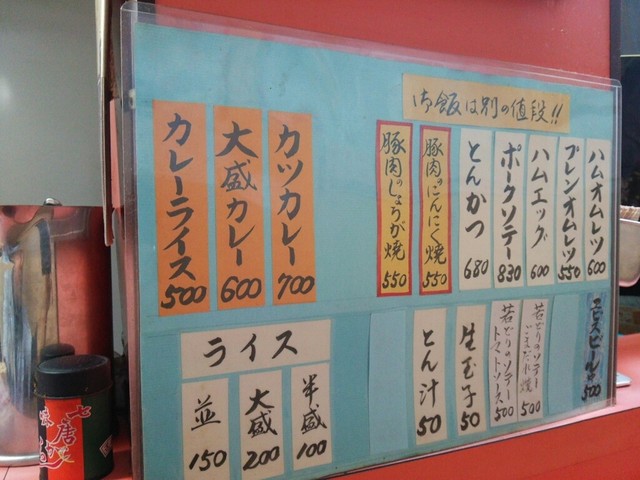 御飯は別の値段!!
ハムオムレツ 600
プレンオムレツ 550
ハムエッグ 600
ポークソテー 830
とんかつ 680
豚肉のにんにく焼 550
豚肉のしょうが焼 550
カツカレー 700
大盛カレー 600
カレーライス 500
ヱビスビール 500
若どりのソテー
ごまだれ焼 500
若どりのソテー
トマトソース 500
生玉子 50
とん汁 50
ライス
半盛 100
大盛 200
並 150
七
味
唐